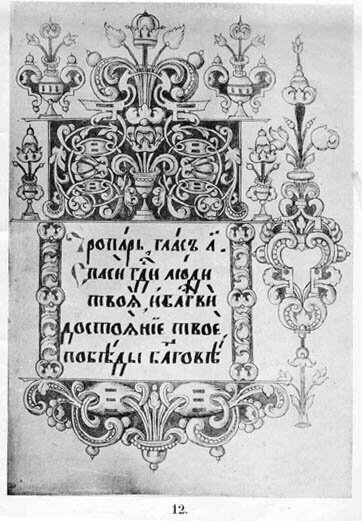 Тропарь, гласъ а҃.
Спаси гд҇и люди
твоѧ҄ и блг҇ви
достоѧнїе твое,
побѣды бл҃говѣ
12.